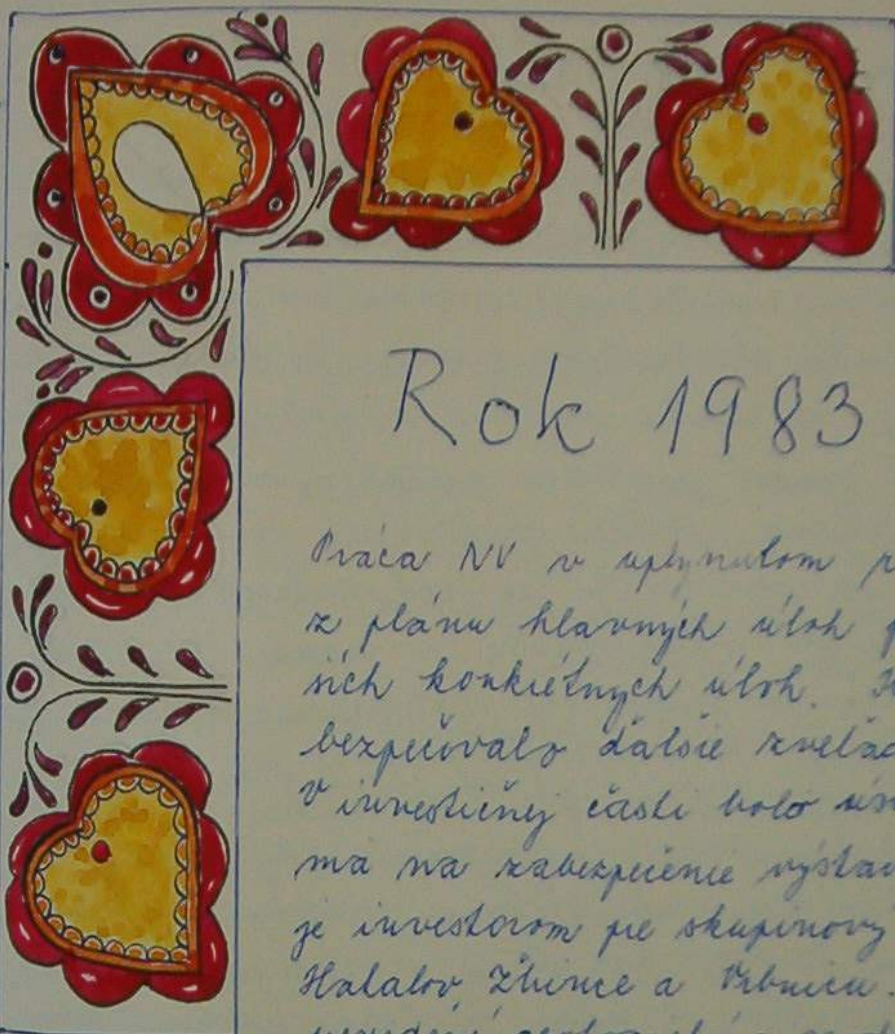 Rok 1983
Práca NV v uplynulom
z plánu hlavných úloh
ších konkrétnych úloh.
bezpečovalo ďalšie
V investičnej časti bolo
ma na zabezpečenie
je investorom pre skupinový
Hatalov, Žbince a Vrbnicu.